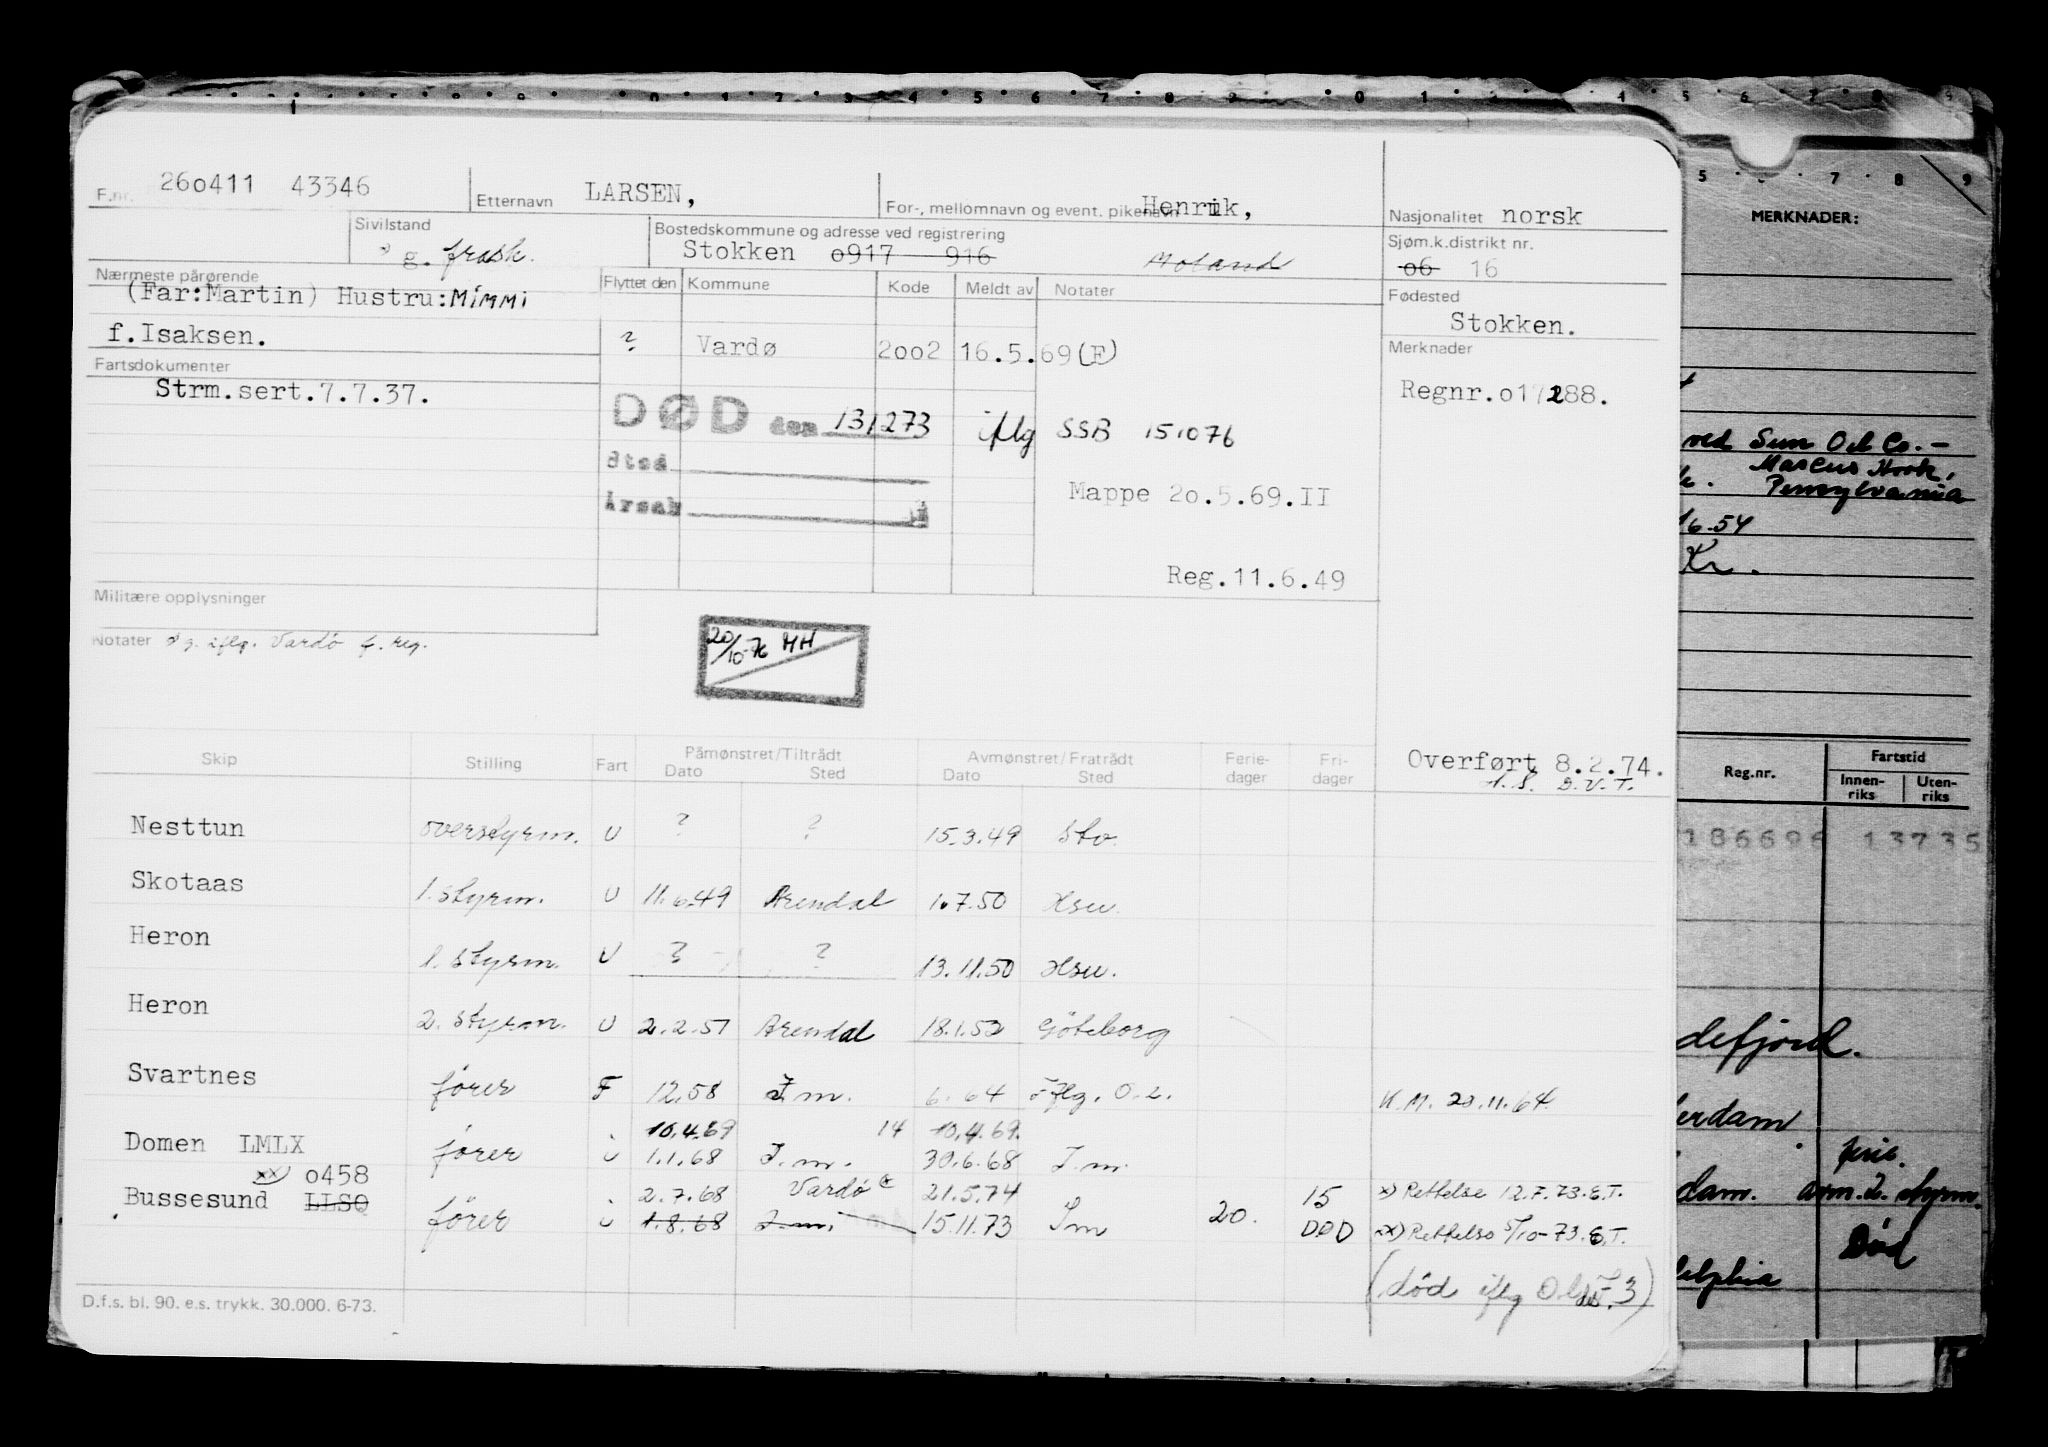 F.nr. 26o411 43346
Etternavn LARSEN,
For-, mellomnavn og event. pikenavn Henrik,
Nasjonalitet norsk
Sivilstand
g. frask.
Bostedskommune og adresse ved registrering
Stokken o917 916 Moland
Sjøm.k.distrikt nr.
o6 16
Nærmeste pårørende
(Far:Martin) Hustru:MIMMI
f.Isaksen.
Flyttet den Kommune Kode Meldt av Notater
? Vardø 2oo2 16.5.69(F)
Fødested
Stokken.
Merknader
Regnr.o17288.
Fartsdokumenter
Strm.sert.7.7.37.
DØD den 131273 iflg SSB 151076
Sted
Årsak
Mappe 2o.5.69.II
Reg.11.6.49
Militære opplysninger
Notater g. iflg. Vardø f. reg.
20/10-76 HH
Skip Stilling Fart Påmønstret/Tiltrådt Avmønstret/Fratrådt Ferie- Fri-
Dato Sted Dato Sted dager dager
Overført 8.2.74.
A.S. D.V.T.
Nesttun overstyrm. U ? ? 15.3.49 Sto.
Skotaas 1. styrm. U 11.6.49 Arendal 1.7.50 Hsu.
Heron 1. styrm. U ? ? 13.11.50 Hsu.
Heron 2. styrm. U 2.2.51 Arendal 18.1.52 Göteborg
Svartnes fører F 12.58 I.m. 6.64 Iflg. O.L. K.M. 20.11.64.
10.4.69 14 10.4.69.
Domen LMLX fører U 1.1.68 I.m. 30.6.68 I.m.
xx) o458 2.7.68 Vardø 21.5.74 15 x) Rettelse 12.7.73.E.T.
Bussesund LLSQ fører U 1.8.68 I.m. 15.11.73 Im 20. DØD xx) Rettelse 5/10-73.E.T.
(død iflg
D.f.s. bl. 90. e.s. trykk. 30.000. 6-73.
MERKNADER:
ved Sun Oil Co.-
Marcus Hook,
Pensylvania
16.54
Kr.
Reg.nr. Fartstid
Innen-riks Uten-riks
186696 13735
defjord.
erdam
dam. avm. 2. styrm.
Død
delphia